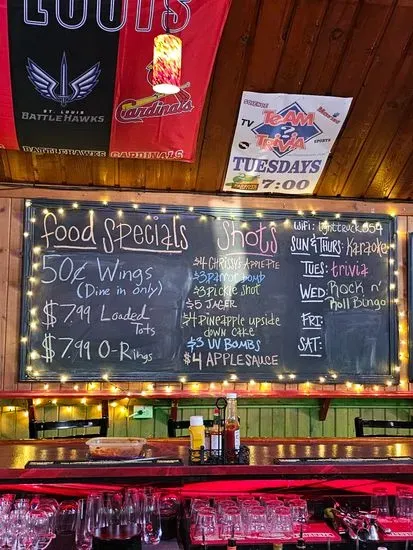 LOUIS
ST. LOUIS
BATTLEHAWKS
Cardinals
BATTLEHAWKS CARDINALS
SCIENCE
TV
TEAM
TRIVIA
SPORTS
TUESDAYS
7:00
food Specials
50¢ Wings
(Dine in only)
$7.99 Loaded
Tots
$7.99 O-Rings
Shots
$4 CHRISSY'S APPLE PIE
$3 Parrot bomb
$3 Pickle shot
$5 JAGER
$4 Pineapple upside
down cake
$3 UV BOMBS
$4 APPLESAUCE
WiFi:
SUN & THURS: Karaoke
TUES: trivia
WED: Rock n'
Roll Bingo
FRI:
SAT: